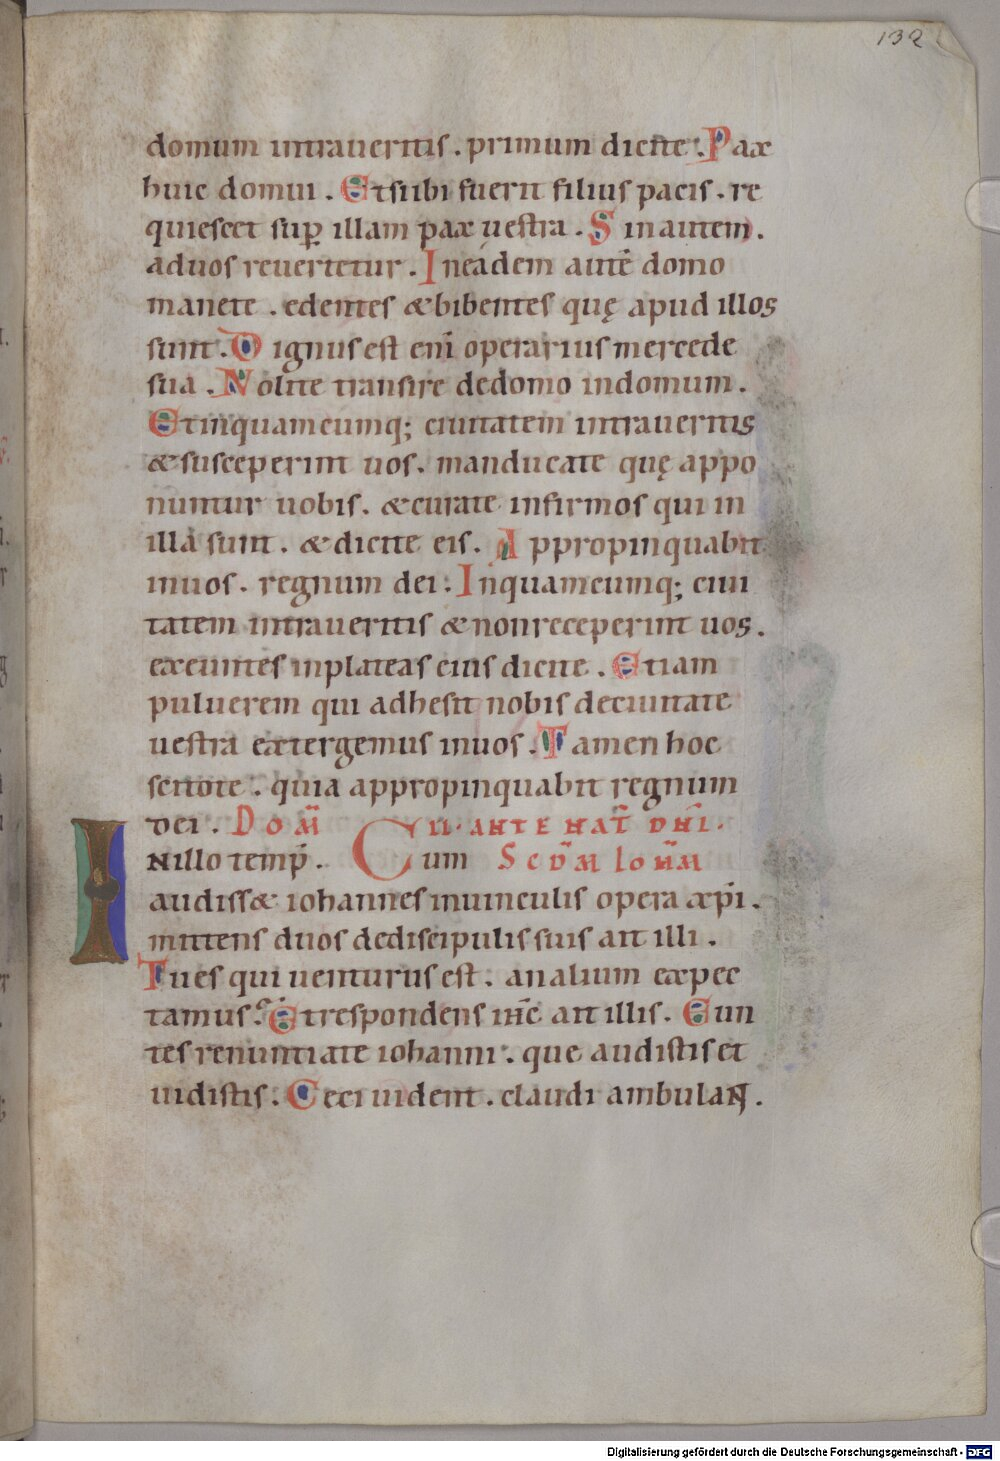 132
domum intraueritis . primum dicite : Pax
huic domui . Et si ibi fuerit filius pacis . re
quiescet sup illam pax uestra . Sin autem .
ad uos reuertetur . In eadem autē domo
manete . edentes & bibentes quę apud illos
sunt . Dignus est eni operarius mercede
sua . Nolite transire de domo in domum .
Et in quamcumq; ciuitatem intraueritis
& susceperint uos . manducate quę appo
nuntur uobis . & curate infirmos qui in
illa sunt . & dicite eis . Appropinquabit
in uos . regnum dei : In quamcumq; ciui
tatem intraueritis & non receperint uos .
exeuntes in plateas eius dicite . Etiam
puluerem qui adhesit nobis de ciuitate
uestra extergemus in uos . Tamen hoc
scitote . quia appropinquabit regnum
dei . DOM̄ II . ANTE NAT̄ DN̄I .
IN illo temp̄ . Cum SCD̄M IOHM
audiss& iohannes in uinculis opera xp̄i .
mittens duos de discipulis suis ait illi .
Tu es qui uenturus est : an alium expec
tamus . Et respondens ih̄c ait illis . Eun
tes renuntiate iohanni . que audistis et
uidistis . Ceci uident . claudi ambulaN .
Digitalisierung gefördert durch die Deutsche Forschungsgemeinschaft - DFG